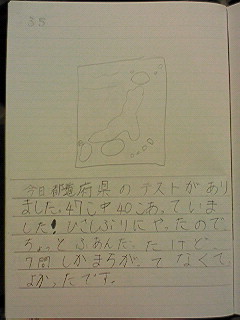 38
今日都道府県のテストがあり
ました。47こ中40こあっていま
した!ひさしぶりにやったので、
ちょっとふあんだったけど、
7問しかまちがってなくて
よかったです。